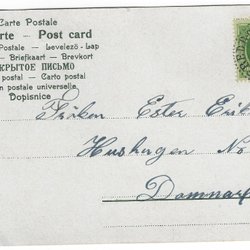 Carte Postale
arte - Post card
Postale - Levelező-Lap
- Briefkaart - Brevkort
КРЫТОЕ ПИСЬМО
postal - Carto postal
n postale universelle
Dopisnice
Fröken Ester Erik
Hushagen No
Domnarf